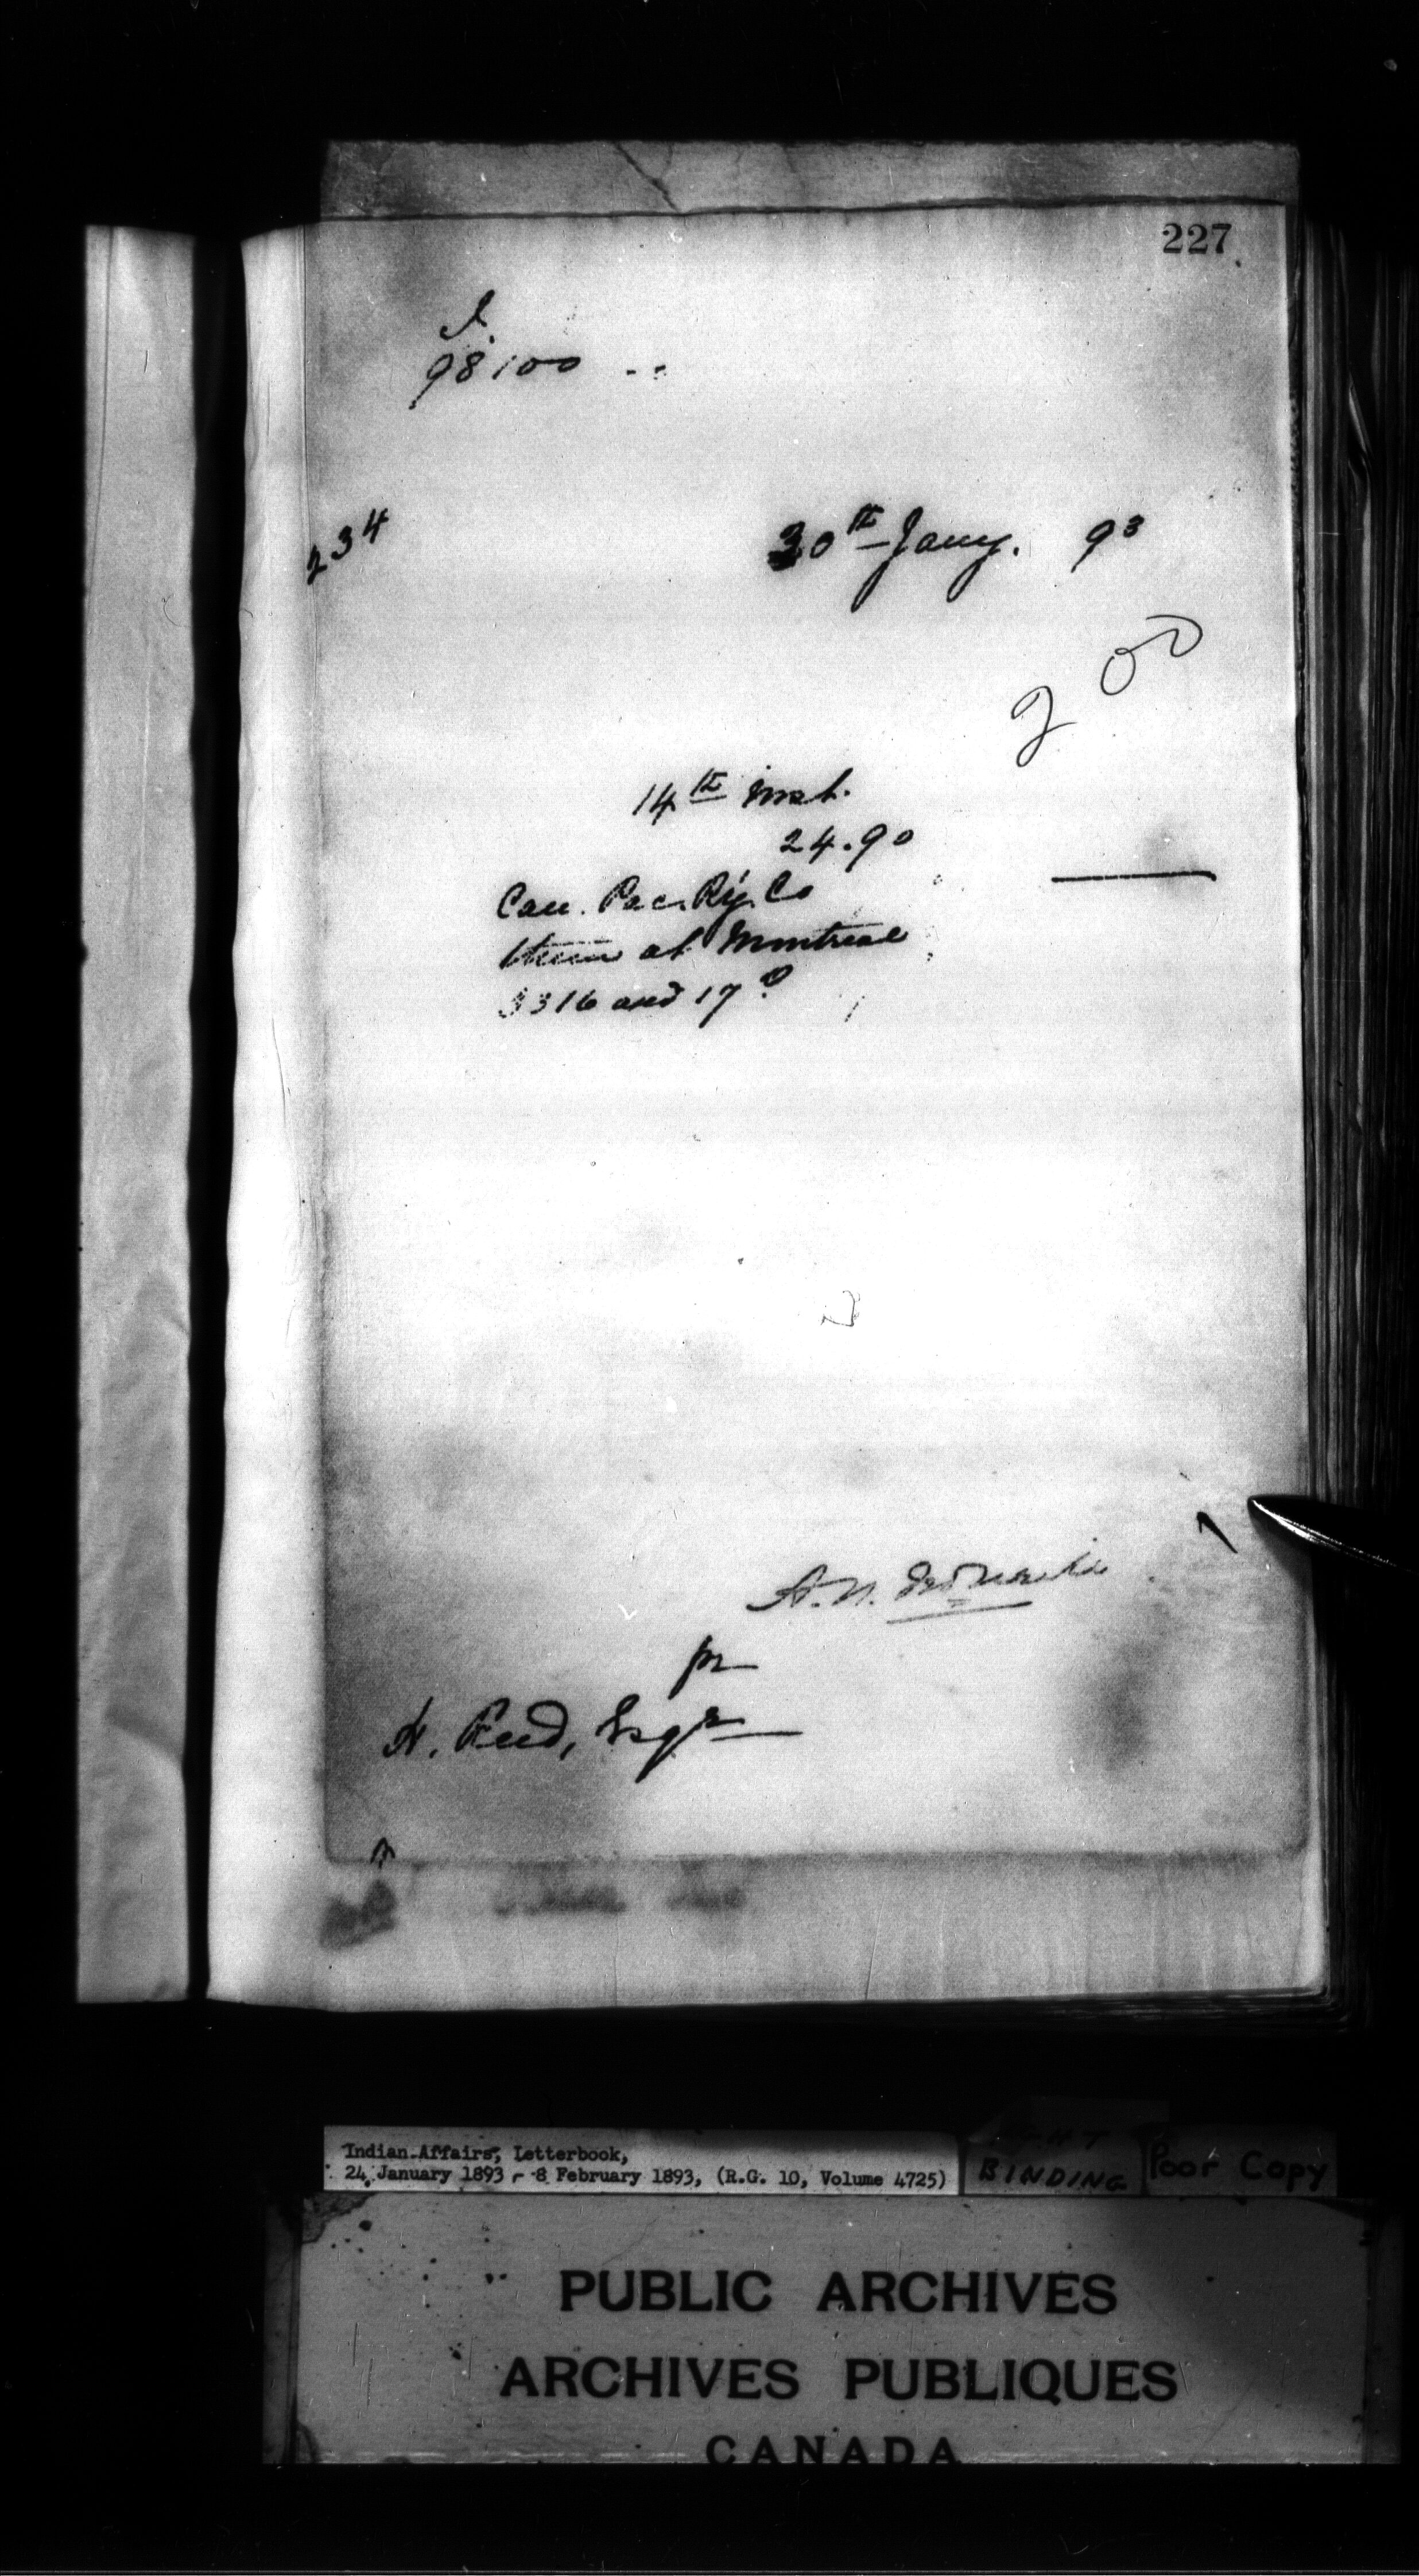 227
98100
234
30th Jany. 93
200
14th inst.
24.90
Can. Pac. Ry. Co
them at Montreal
3316 and 17
A. N.
pr
H. Reed, Esqr
Indian Affairs, Letterbook,
24 January 1893 - 8 February 1893, (R.G. 10, Volume 4725)
BINDING
Poor Copy
PUBLIC ARCHIVES
ARCHIVES PUBLIQUES
CANADA